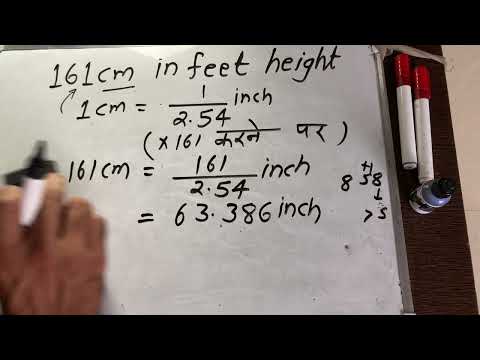 161cm in feet height
1cm = 1/2.54 inch
(×161 करने पर)
161cm = 161/2.54 inch
= 63.386 inch
+1
8 58
↓
>5